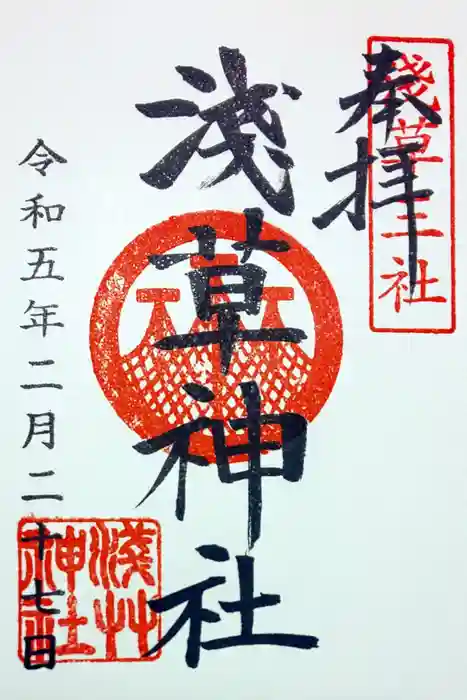 奉拝
淺草三社
淺草神社
令和五年二月二十七日
淺艸神社